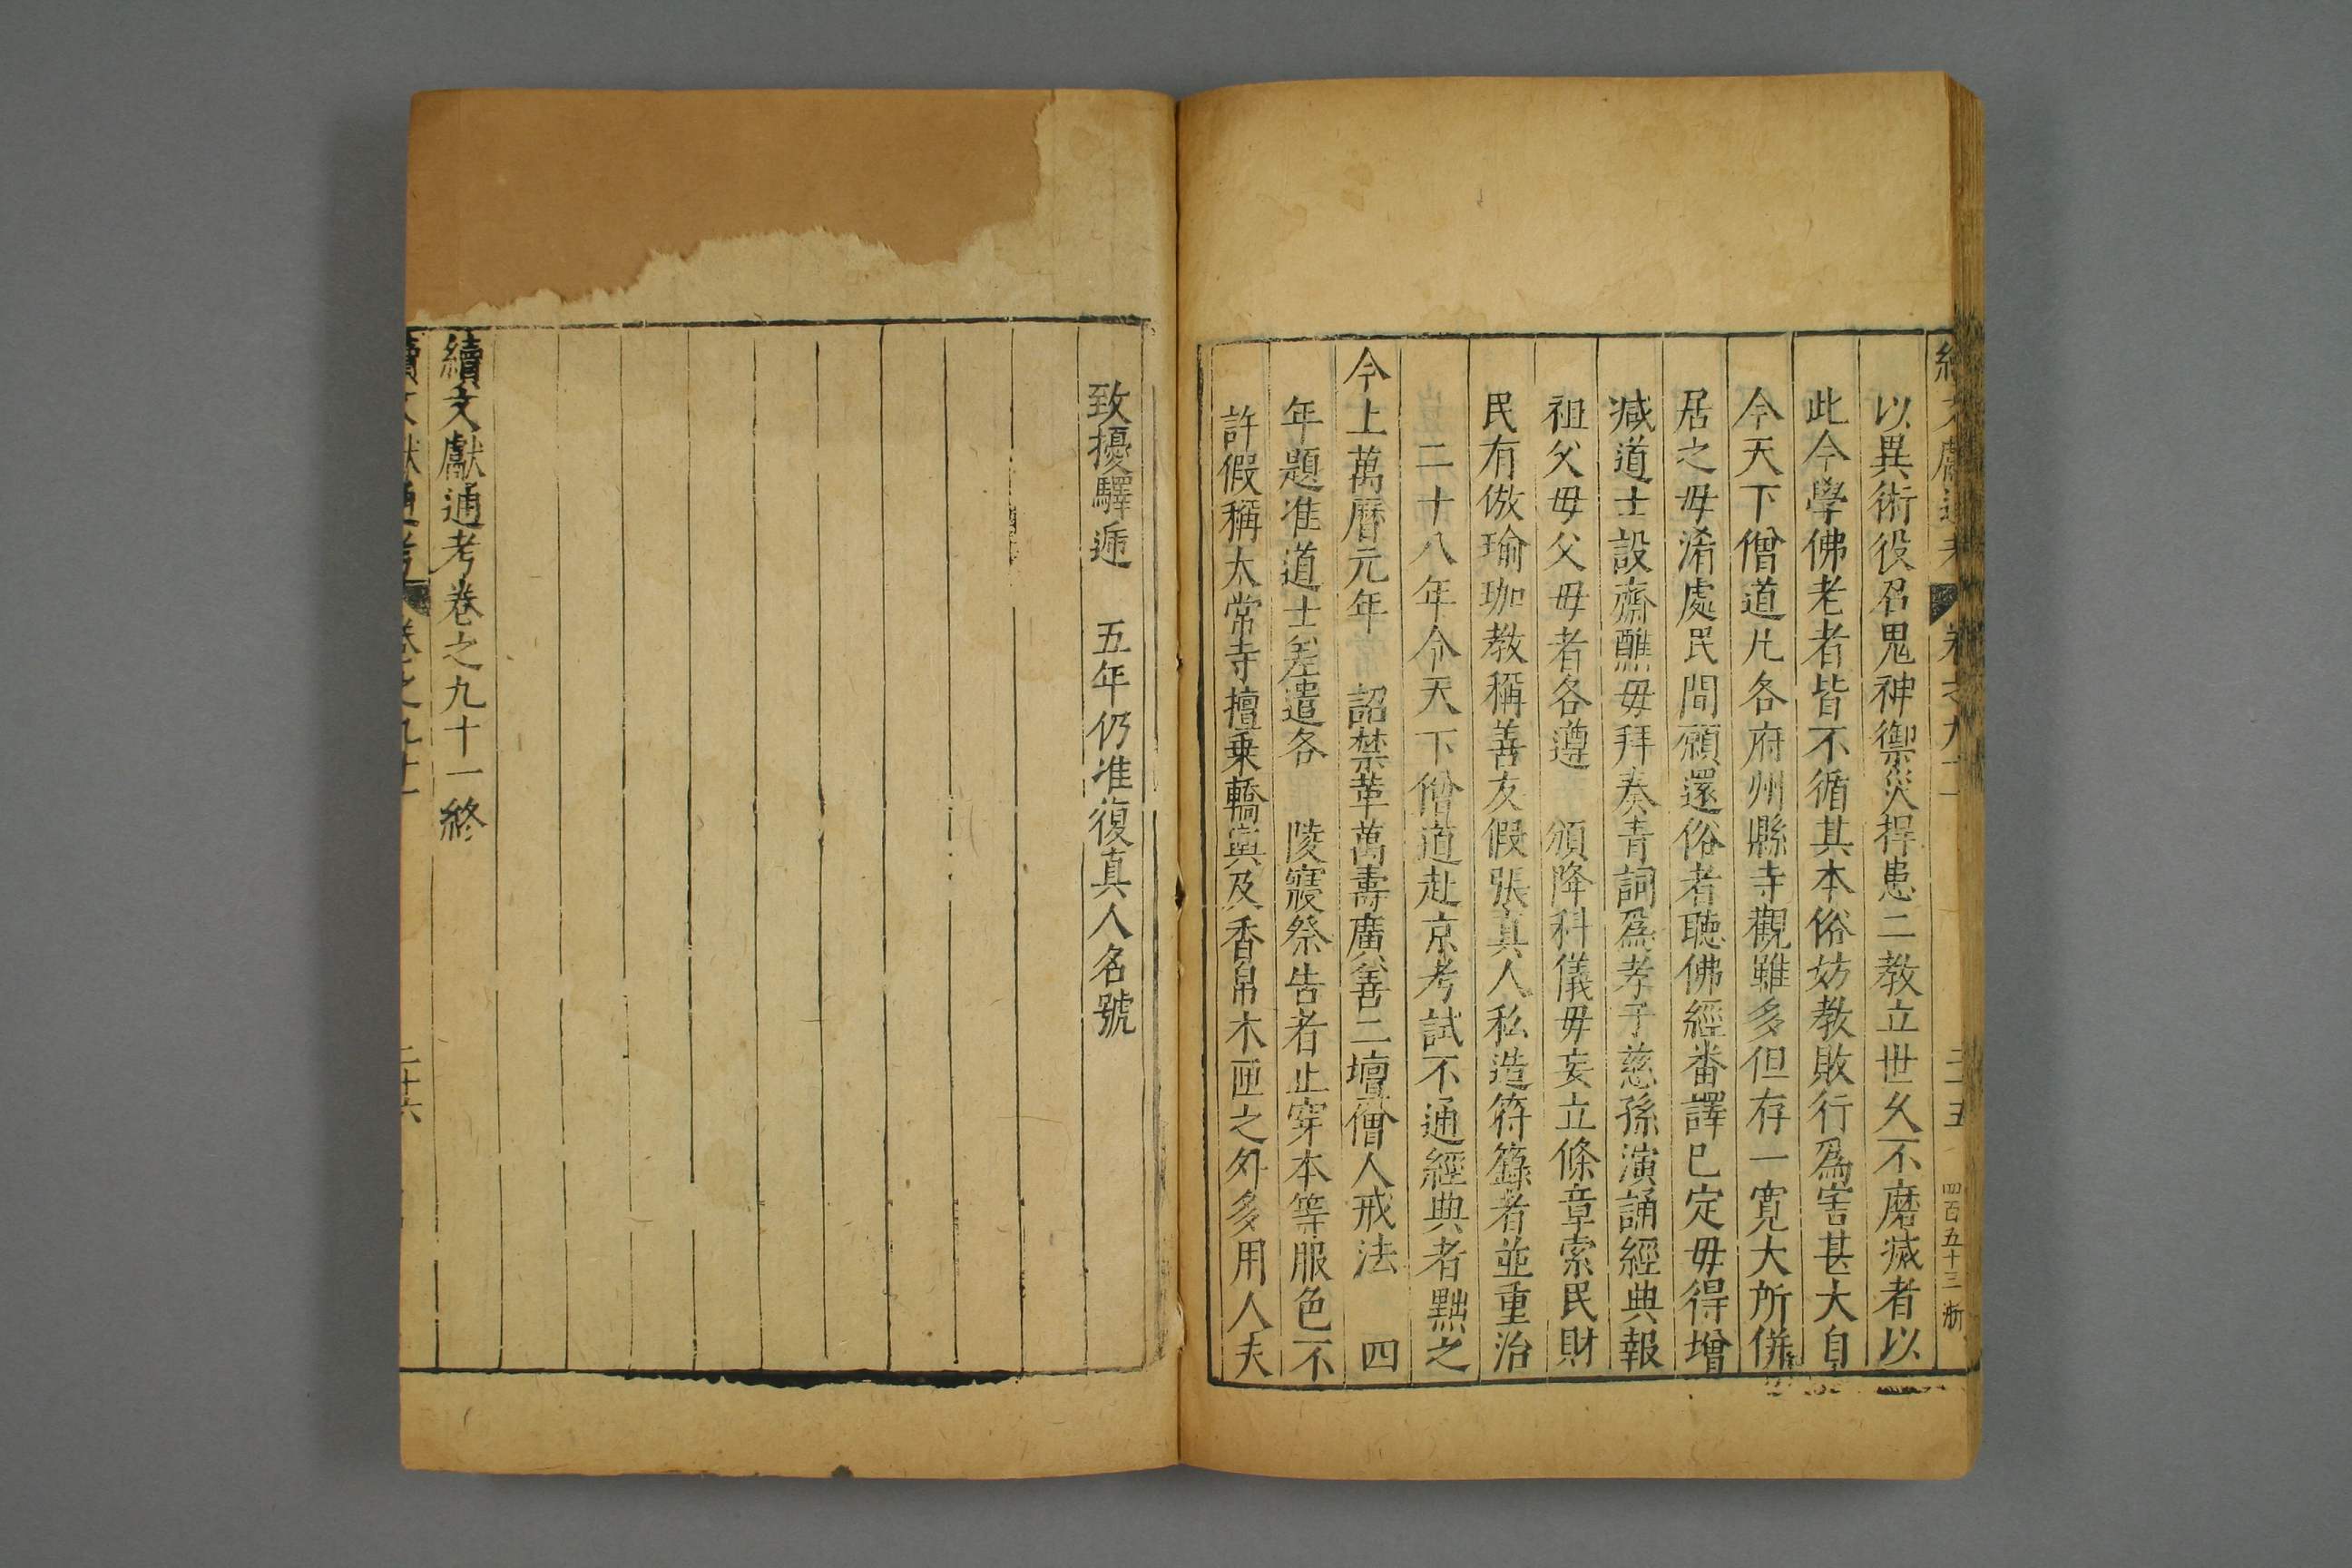 以異術役召鬼神禦災捍患二教立世久不磨滅者以
此今學佛老者皆不循其本俗妨教敗行爲害甚大自
今天下僧道凡各府州縣寺觀雖多但存一寬大所併
居之毋淆處民間願還俗者聽佛經番譯已定毋得增
減道士設齋醮毋拜奏青詞爲孝子慈孫演誦經典報
祖父母父母者各遵 頒降科儀毋妄立條章索民財
民有倣瑜珈教稱善友假張真人私造符籙者並重治
二十八年令天下僧道赴京考試不通經典者黜之
今上萬曆元年 詔禁革萬壽廣善二壇僧人戒法 四
年題准道士差遣各 陵寢祭告者止穿本等服色不
許假稱太常寺擅乗轎輿及香帛木匣之外多用人夫
致擾驛遞 五年仍准復真人名號
續文獻通考卷之九十一終